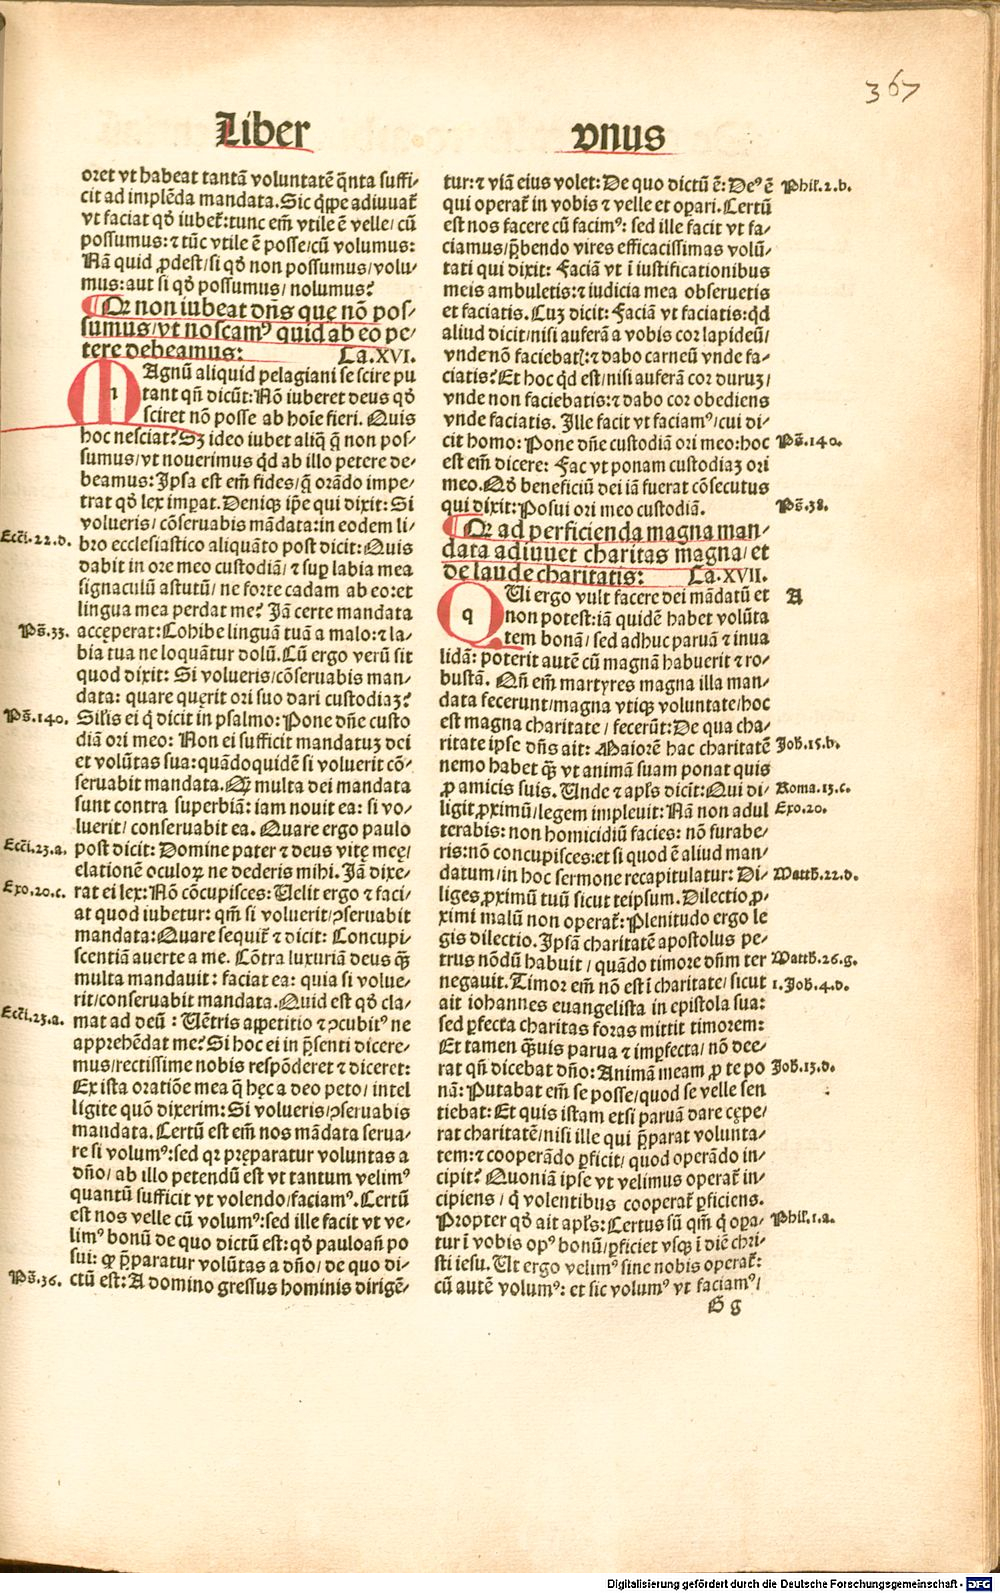 367
Liber vnus
oret vt habeat tantã voluntatẽ q̃nta suffi/
cit ad implẽda mandata. Sic q̃ppe adiuuat̃
vt faciat qđ iubet̃: tunc em̃ vtile ẽ velle/ cũ
possumus: ⁊ tũc vtile ẽ posse/ cũ volumus:
Nã quid ꝓdest/ si qđ non possumus/ volu/
mus: aut si qđ possumus/ nolumus?
¶ Qꝛ non iubeat dñs que nõ pos/
sumus/ vt noscamꝰ quid ab eo pe/
tere debeamus: Ca. XVI.
MAgnũ aliquid pelagiani se scire pu
tant qñ dicũt: Nõ iuberet deus qđ
sciret nõ posse ab hoĩe fieri. Quis
hoc nesciat? Sꝫ ideo iubet aliq̃ q̃ non pos/
sumus/ vt nouerimus qd̃ ab illo petere de/
beamus: Ipsa est em̃ fides/ q̃ orãdo impe/
trat qđ lex imꝑat. Deniqꝫ ip̃e qui dixit: Si
volueris/ cõseruabis mãdata: in eodem li/
Ecc̃i. 22. d. bro ecclesiastico aliquãto post dicit: Quis
dabit in ore meo custodiã/ ⁊ suꝑ labia mea
signaculũ astutũ/ ne forte cadam ab eo: et
lingua mea perdat me? Jã certe mandata
Ps̃. 33. accęperat: Cohibe linguã tuã a malo: ⁊ la/
bia tua ne loquãtur dolũ. Cũ ergo verũ sit
quod dixit: Si volueris/ cõseruabis man/
data: quare quęrit ori suo dari custodiaꝫ?
Ps̃. 140. Silis ei q̃ dicit in psalmo: Pone dñe custo
diã ori meo: Non ei sufficit mandatuꝫ dei
et volũtas sua: quãdoquidẽ si voluerit cõ/
seruabit mandata. Qꝫ multa dei mandata
sunt contra superbiã: iam nouit ea: si vo/
luerit/ conseruabit ea. Quare ergo paulo
Ecc̃i. 23. a. post dicit: Domine pater ⁊ deus vitę meę/
elationẽ oculoꝝ ne dederis mihi. Jã dixe/
Exo. 20. c. rat ei lex: Nõ cõcupisces: Uelit ergo ⁊ faci/
at quod iubetur: qm̃ si voluerit/ ꝯseruabit
mandata: Quare sequit̃ ⁊ dicit: Concupi/
scentiã auerte a me. Cõtra luxuriã deus q̃ꝫ
multa mandauit: faciat ea: quia si volue/
rit/ conseruabit mandata. Quid est qđ cla/
Ecc̃i. 23. a. mat ad deũ: Uẽtris apꝑetitio ⁊ ꝯcubitꝰ ne
apprehẽdat me? Si hoc ei in p̃senti dicere/
mus/ rectissime nobis respõderet ⁊ diceret:
Ex ista oratiõe mea q̃ hęc a deo peto/ intel
ligite quõ dixerim: Si volueris/ ꝯseruabis
mandata. Certũ est em̃ nos mãdata serua/
re si volumꝰ: sed qꝛ pręparatur voluntas a
dño/ ab illo petendũ est vt tantum velimꝰ
quantũ sufficit vt volendo/ faciamꝰ. Certũ
est nos velle cũ volumꝰ: sed ille facit vt ve/
limꝰ bonũ de quo dictũ est: qđ pauloañ po
sui: ꝙ p̃paratur volũtas a dño/ de quo di/
Ps̃. 36. ctũ est: A domino gressus hominis dirigẽ/
tur: ⁊ viã eius volet: De quo dictũ ẽ: Deꝰ ẽ Phil̃. 2. b.
qui operat̃ in vobis ⁊ velle et oꝑari. Certũ
est nos facere cũ facimꝰ: sed ille facit vt fa/
ciamus/ p̃bendo vires efficacissimas volũ/
tati qui dixit: Faciã vt ĩ iustificationibus
meis ambuletis: ⁊ iudicia mea obseruetis
et faciatis. Cuꝫ dicit: Faciã vt faciatis: qd̃
aliud dicit/ nisi auferã a vobis cor lapideũ/
vnde nõ faciebat̃: ⁊ dabo carneũ vnde fa/
ciatis? Et hoc qd̃ est/ nisi auferã cor duruꝫ/
vnde non faciebatis: ⁊ dabo cor obediens
vnde faciatis. Ille facit vt faciamꝰ/ cui di/
cit homo: Pone dñe custodiã ori meo: hoc Ps̃. 140.
est em̃ dicere: Fac vt ponam custodiaꝫ ori
meo. Qđ beneficiũ dei iã fuerat cõsecutus
qui dixit: Posui ori meo custodiã. Ps̃. 38.
¶ Qꝛ ad perficienda magna man/
data adiuuet charitas magna/ et
de laude charitatis: Ca. XVII.
QUi ergo vult facere dei mãdatũ et A
non potest: iã quidẽ habet volũta
tem bonã/ sed adhuc paruã ⁊ inua
lidã: poterit autẽ cũ magnã habuerit ⁊ ro/
bustã. Qñ em̃ martyres magna illa man/
data fecerunt/ magna vtiqꝫ voluntate/ hoc
est magna charitate/ fecerũt: De qua cha/
ritate ipse dñs ait: Maiorẽ hac charitatẽ Joh. 15. b.
nemo habet q̃ꝫ vt animã suam ponat quis
ꝓ amicis suis. Unde ⁊ apl̃s dicit: Qui di/ Roma. 13. c.
ligit ꝓximũ/ legem impleuit: Nã non adul Exo. 20.
terabis: non homicidiũ facies: nõ furabe/
ris: nõ concupisces: et si quod ẽ aliud man/
datum/ in hoc sermone recapitulatur: Di/ Matth. 22. d.
liges ꝓximũ tuũ sicut teipsum. Dilectio ꝓ/
ximi malũ non operat̃: Plenitudo ergo le
gis dilectio. Ipsã charitatẽ apostolus pe/
trus nõdũ habuit/ quãdo timore dñm ter Matth. 26. g.
negauit. Timor em̃ nõ est ĩ charitate/ sicut 1. Joh. 4. d.
ait iohannes euangelista in epistola sua:
sed ꝑfecta charitas foras mittit timorem:
Et tamen q̃ꝫuis parua ⁊ imꝑfecta/ nõ dee/
rat qñ dicebat dño: Animã meam ꝓ te po Joh. 13. d.
nã: Putabat em̃ se posse/ quod se velle sen
tiebat: Et quis istam etsi paruã dare cępe/
rat charitatẽ/ nisi ille qui p̃parat volunta/
tem: ⁊ cooperãdo ꝑficit/ quod operãdo in/
cipit? Quoniã ipse vt velimus operat̃ in/
cipiens/ q̃ volentibus cooperat̃ ꝑficiens.
Propter qđ ait apl̃s: Certus sũ qm̃ q̃ oꝑa/ Phil̃. 1. a.
tur ĩ vobis opꝰ bonũ/ ꝑficiet vsqꝫ ĩ diẽ chri/
sti iesu. Ut ergo velimꝰ sine nobis operat̃:
cũ autẽ volumꝰ: et sic volumꝰ vt faciamꝰ/
G g
Digitalisierung gefördert durch die Deutsche Forschungsgemeinschaft - DFG